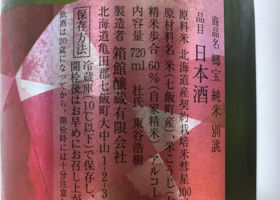 商品名 郷宝 純米 別誂
品目 日本酒
原料米 北海道産契約栽培米彗星100
原材料名 米(七飯町産)米こうじ
精米歩合 60%(自家精米)アルコー
内容量 720ml 杜氏 東谷浩樹
製造者 箱館醸蔵有限会社
北海道亀田郡七飯町大中山1-2-3
保存方法 冷蔵庫(10℃以下)で保存し、
開栓後はお早めにお召し上が
飲酒は20歳になってから。開栓時には十分注意